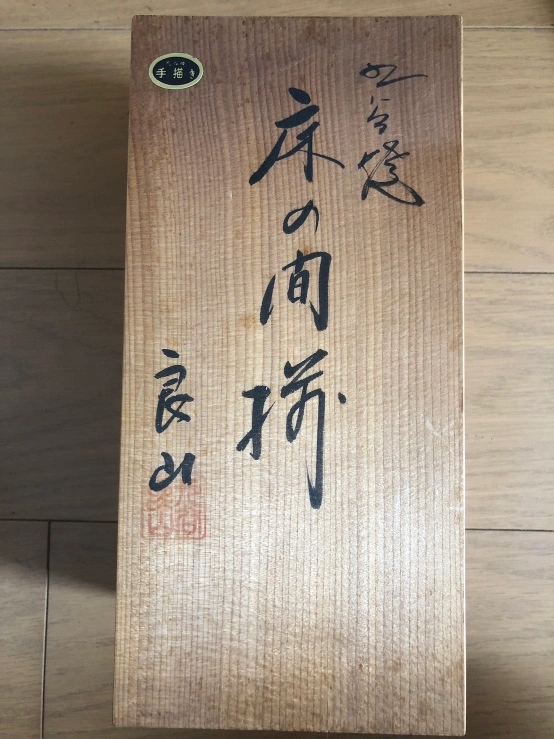 九谷焼
床の間揃
良山
手描き